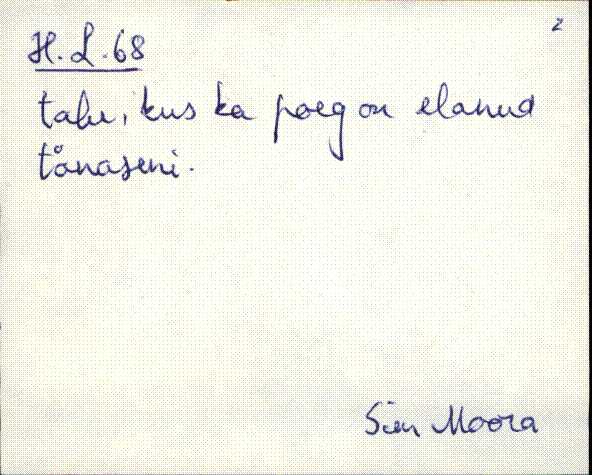 2
H.L.68
talu, kus ka poeg on elanud
tänaseni.
Siim Moora